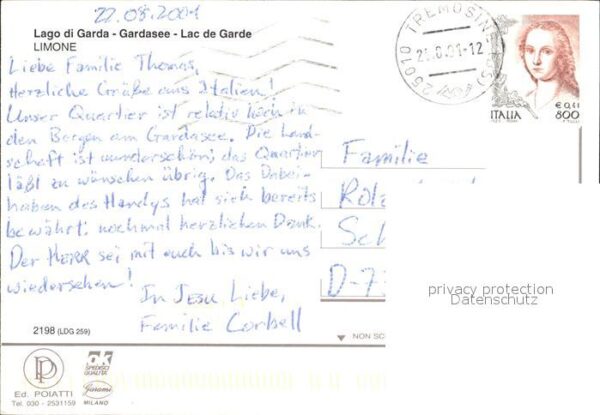 22.08.2001
Lago di Garda - Gardasee - Lac de Garde
LIMONE
Liebe Familie Thomas,
Herzliche Grüße aus Italien!
Unser Quartier ist relativ hoch in
den Bergen am Gardasee. Die Land-
schaft ist wunderschön; das Quartier
läßt zu wünschen übrig. Das Dabei-
haben des Handys hat sich bereits
bewährt; nochmal herzlichen Dank.
Der HERR sei mit euch bis wir uns
wiedersehen!
In JESU Liebe,
Familie Corbell
25010 TREMOSINE (BS)
8.01-12
ITALIA
€ 0,41
800
Familie
Rol
Sch
D-7
privacy protection
Datenschutz
2198 (LDG 259)
NON SC
Ed. POIATTI
Tel. 030 - 2531159
OK
SPEDISCI
QUALITA'
Ginami
MILANO